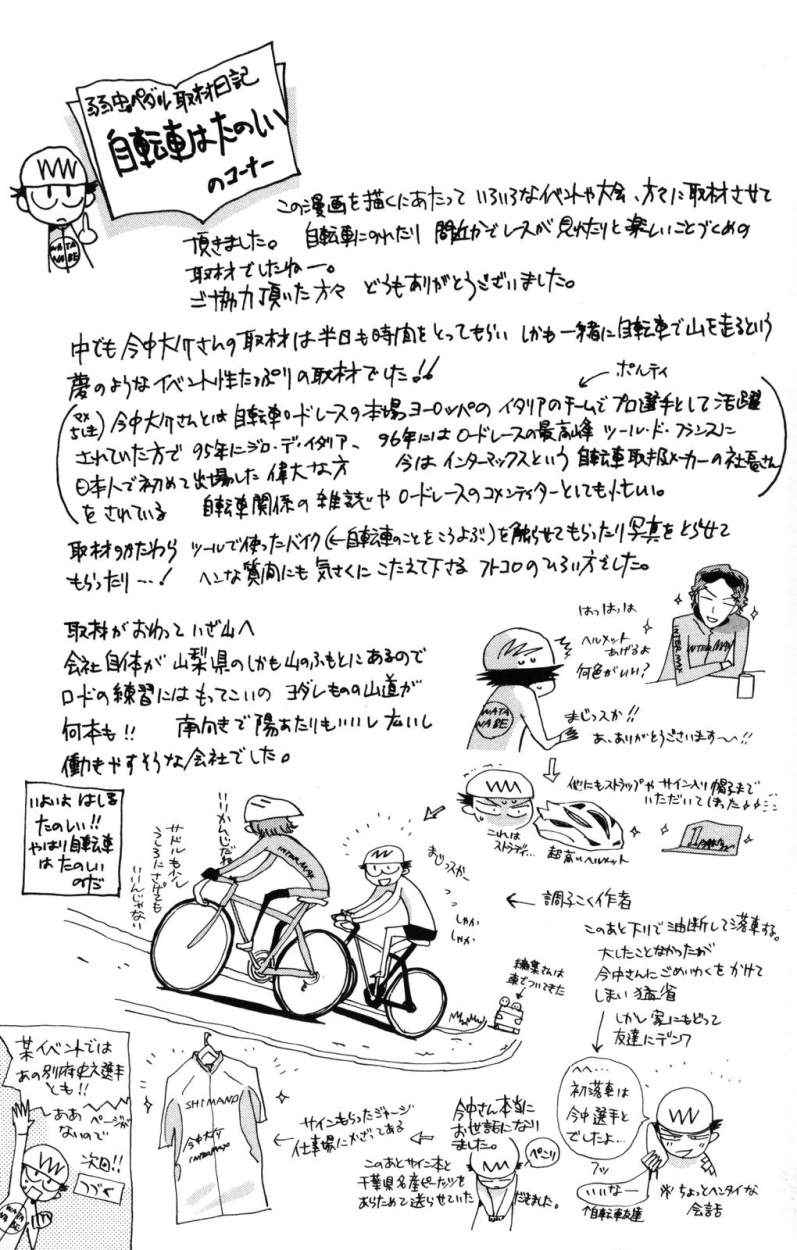 弱虫ペダル取材日記
自転車はたのしい
のコーナー
WATA
NABE
この漫画を描くにあたって いろいろなイベントや大会、方々に取材させて
頂きました。 自転車にのれたり 間近かでレースが見れたりと楽しいことづくめの
取材でしたねー。
ご協力頂いた方々 どうもありがとうございました。
中でも今中大介さんの取材は半日も時間をとってもらい しかも一緒に自転車で山を走るという
夢のようなイベント性たっぷりの取材でした!!
ポルティ
(マメちしき) 今中大介さんとは自転車ロードレースの本場ヨーロッパのイタリアのチームでプロ選手として活躍
されていた方で 95年にジロ・デ・イタリア、 96年にはロードレースの最高峰ツール・ド・フランスに
日本人で初めて出場した偉大な方 今はインターマックスという自転車取扱メーカーの社長さん
をされている 自転車関係の雑誌やロードレースのコメンテイターとしても忙しい。
取材のかたわら ツールで使ったバイク(←自転車のことをこうよぶ)を触らせてもらったり写真をとらせて
もらったり…! ヘンな質問にも気さくにこたえて下さる フトコロのひろい方でした。
取材がおわっていざ山へ
会社自体が山梨県のしかも山のふもとにあるので
ロードの練習にはもってこいの ヨダレものの山道が
何本も!! 南向きで陽あたりもいいし広いし
働きやすそうな会社でした。
はっはっは
ヘルメット
あげるよ
何色がいい?
INTER MAX
INTERMAX
WATA
NABE
まじっスか!!
あ、ありがとうございます〜〜!!
他にもストラップやサイン入り帽子まで
いただいてしまった
これは
ストラディ…
超高いヘルメット
いよいよはしる
たのしい!!
やはり自転車
はたのしい
のだ
いいかんじだね
サドルもう少し
うしろにさげても
いーんじゃない
INTERMAX
まじっスかー
っ
っ
しゃか
しゃか
← 調子こく作者
編集さんは
車でついてきた
このあと下りで油断して落車する。
大したことなかったが
今中さんにごめいわくをかけて
しまい猛省
しかし家にもどって
友達にデンワ
へへ…
初落車は
今中選手と
でしたよ…
フッ
いいなー
自転車友達
※ちょっとヘンタイな
会話
某イベントでは
あの別府史之選手
とも!!
ああ ページが
ないので
次回!!
つづく
WATA
NABE
SHIMANO
今中大介
INTERMAX
サインもらったジャージ
仕事場にかざってある
今中さん本当に
お世話になり
ました。
ぺこり
このあとサイン本と
千葉県名産ピーナッツを
あらためて送らせていただきました。